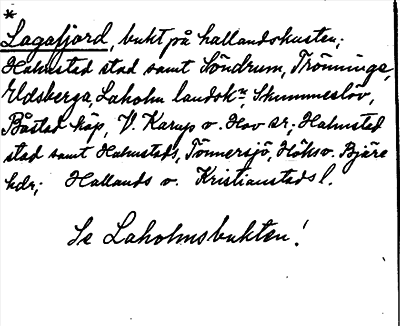 *
Lagafjord, bukt på hallandskusten;
Halmstad stad samt Söndrum, Trönninge,
Eldsberga, Laholm landsk:n, Skummeslöv,
Båstad köp, V. Karup o. Hov sr; Halmstad
stad samt Halmstads, Tönnersjö, Höks o. Bjäre
hdr; Hallands o. Kristianstads l.
Se Laholmsbukten!